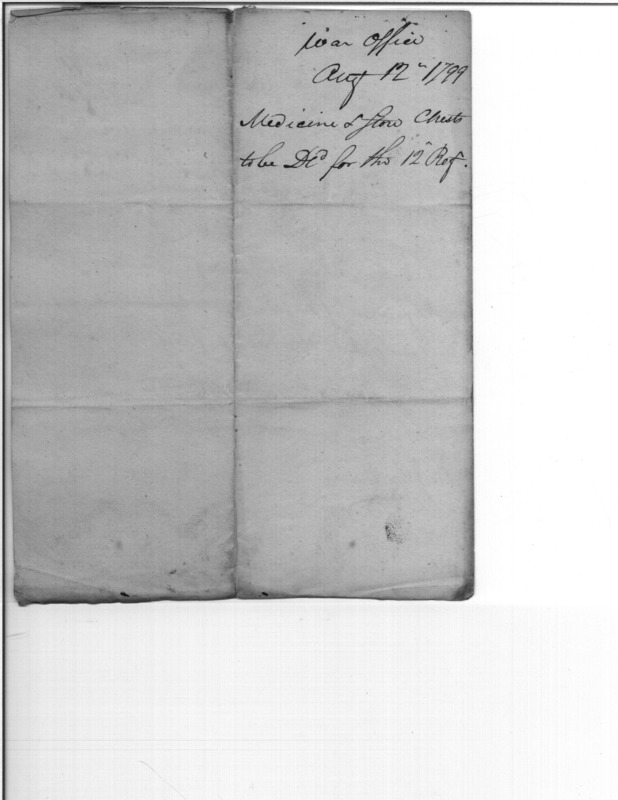 War Office
Augt 12th 1799
Medicine & Store Chests
to be Dld for the 12th Regt.